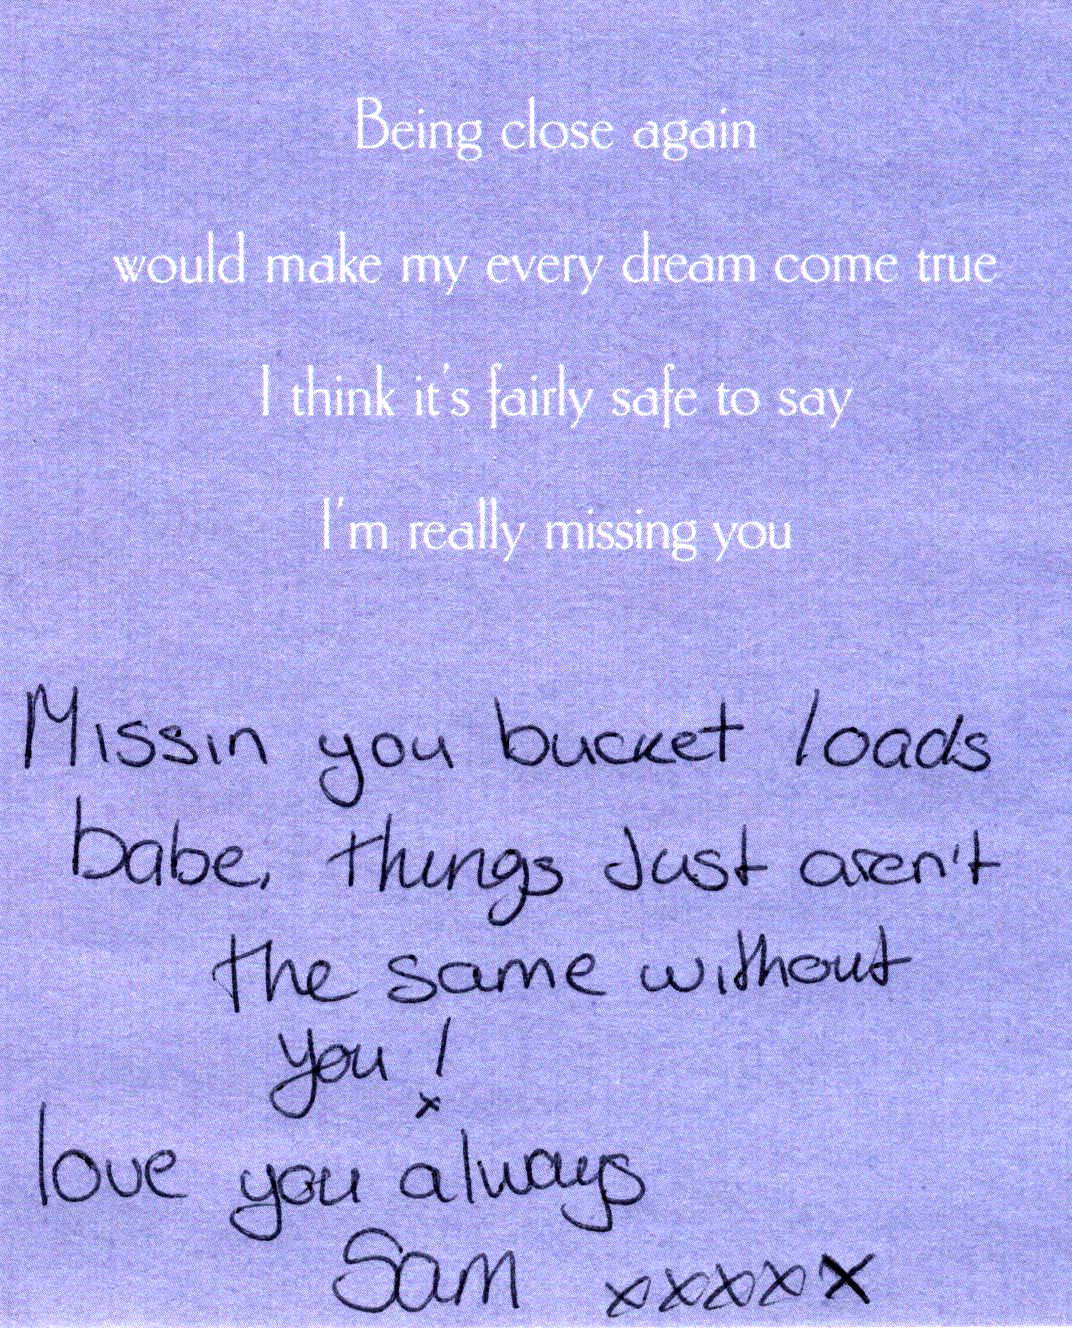 Being close again
would make my every dream come true
I think it's fairly safe to say
I'm really missing you
Missin you bucket loads
babe, things Just aren't
the same without
you!
x
love you always
Sam xxxxx